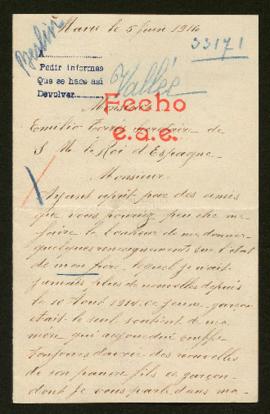 le 5 Juin 1916
33171
Berlin
Pedir informes
Que se hace así
Devolver
Vallée
Fecho
e.a.e.
Monsieur
Emilio de
S. M. le Roi d'Espagne
Monsieur
Ayant appris par des amis
que vous pouviez peu être me
faire le bonheur de me donner
quelques renseignements sur l'état
de mon frère, lequel je n'ai
jamais plus de nouvelles depuis
le 10 Août 1914. ce jeune garçon
était le seul soutient de ma
mère, qui aujourd'hui souffre
toujours d'avoir des nouvelles
de son pauvre fils ce garçon
dont je vous parle dans ma